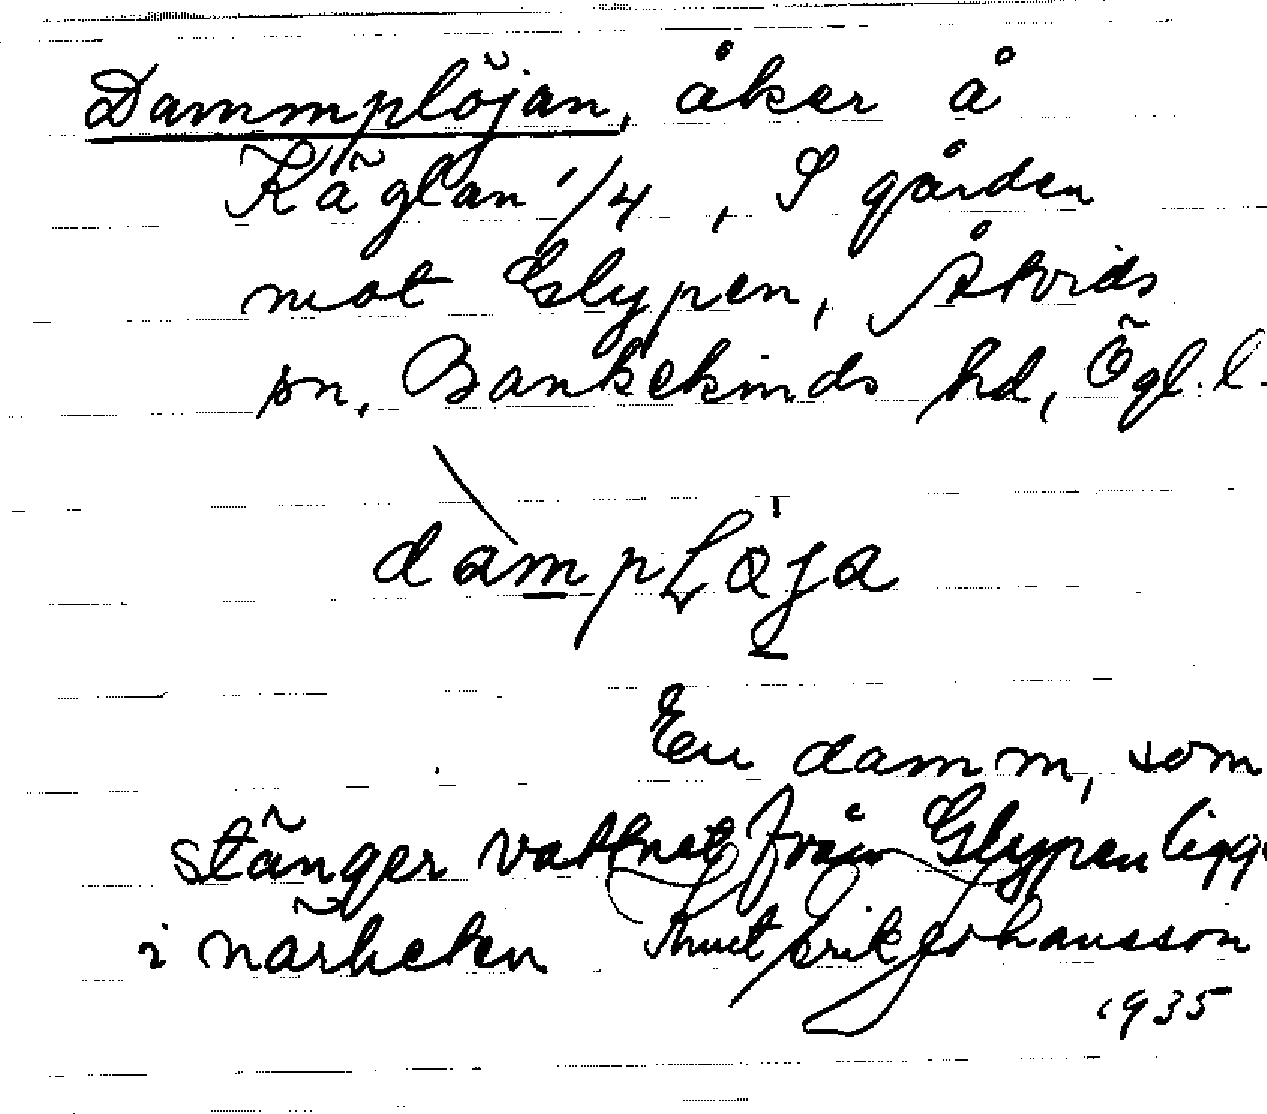 Dammplöjan, åker å
Käglan 1/4, S gården
mot Glypen, Åtvids
sn, Bankekinds hd, Ögl. l.
dampLöja
En damm, som
stänger vattnet från Glypen ligg
i närheten Knut Erik Johansson
1935